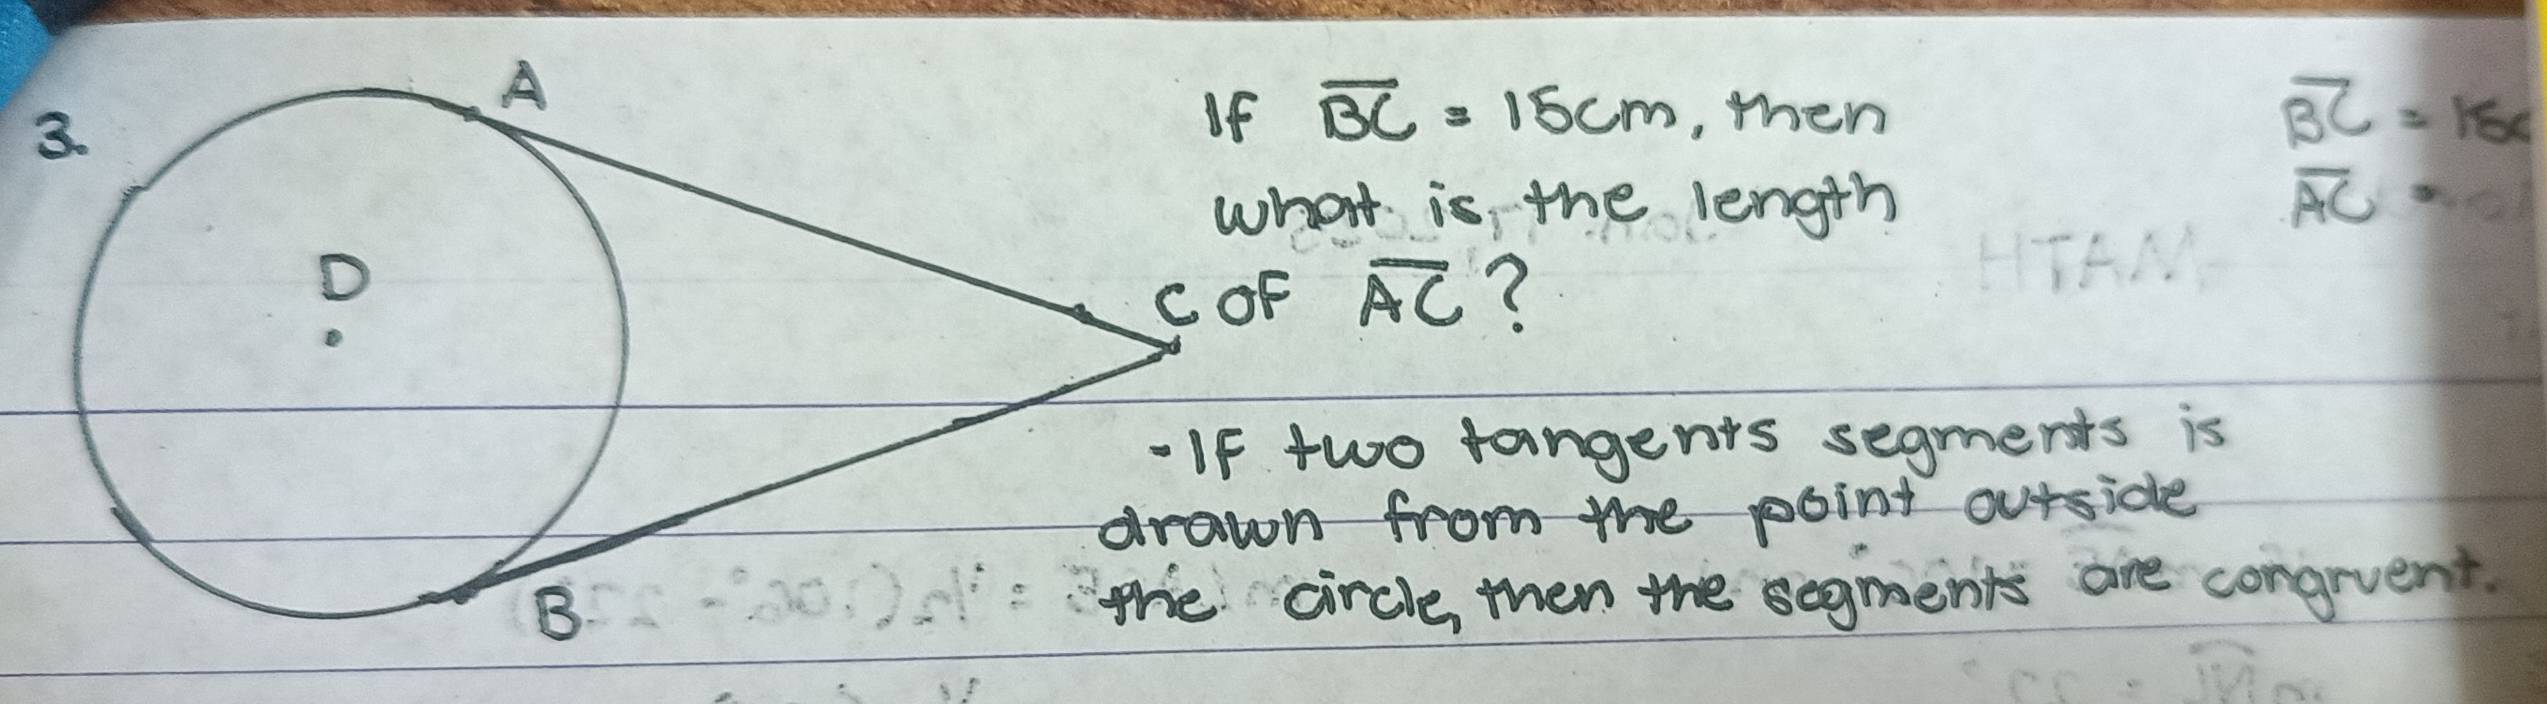 3.
A
D
C
B
If BC = 15cm, then
what is the length
OF AC?
BC = 15c
AC =
MATH
- If two tangents segments is
drawn from the point outside
the circle, then the segments are congruent.